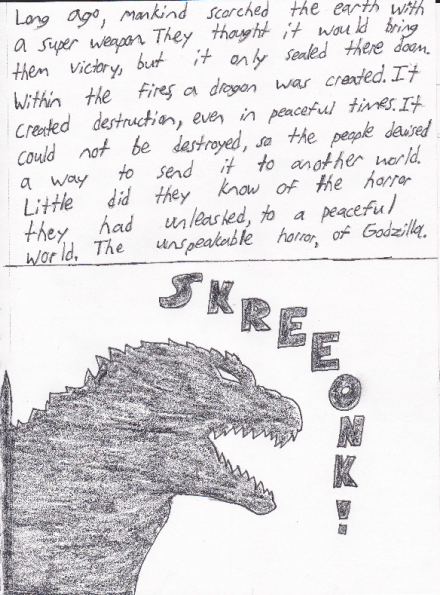 Long ago, mankind scorched the earth with
a super weapon. They thought it would bring
them victory, but it only sealed there doom.
Within the fires, a dragon was created. It
created destruction, even in peaceful times. It
could not be destroyed, so the people devised
a way to send it to another world.
Little did they know of the horror
they had unleashed, to a peaceful
world. The unspeakable horror, of Godzilla.
SKREEONK!